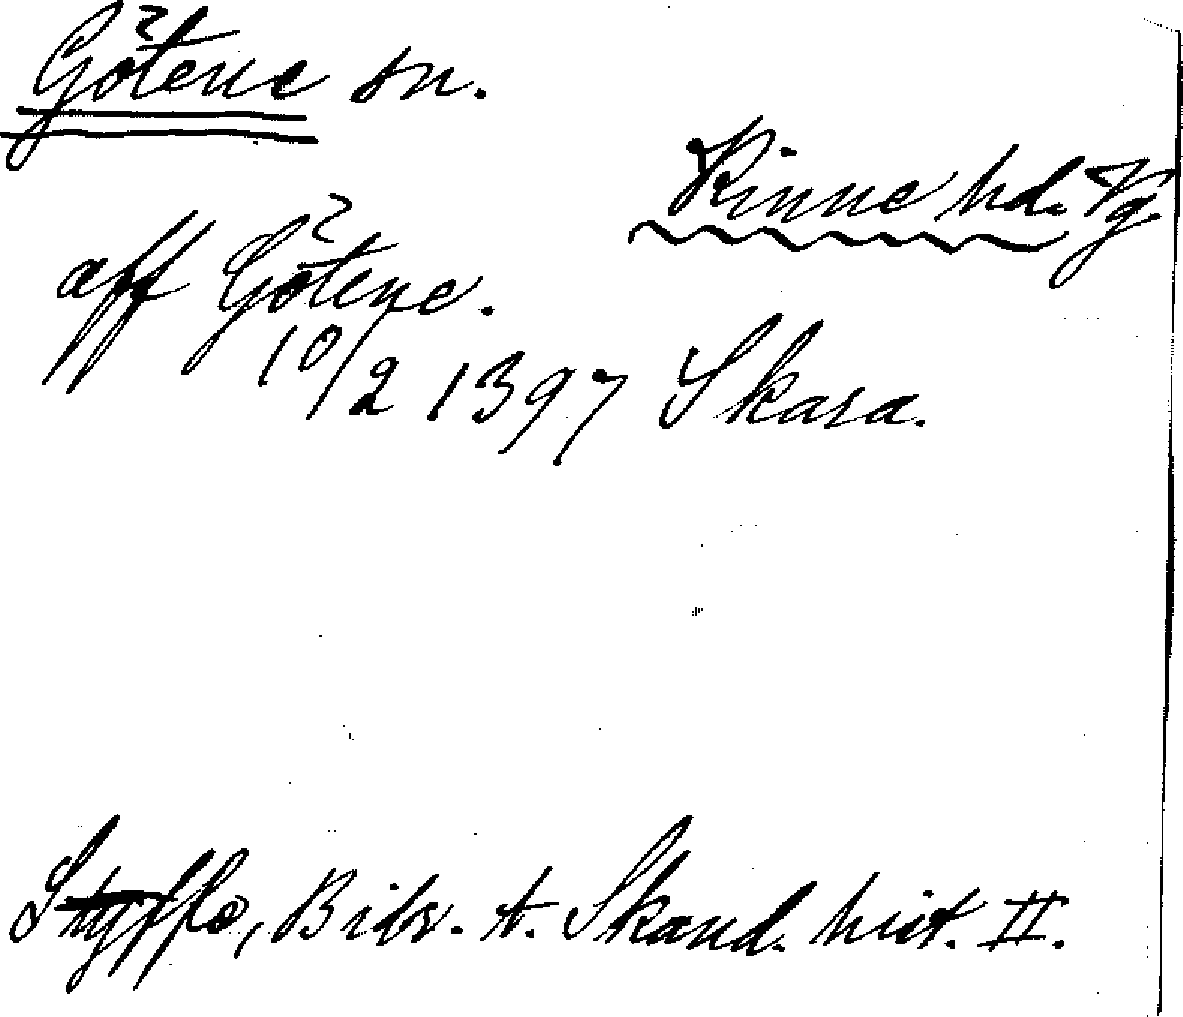 Götene sn.
Kinne hd. Vg.
aff Götene.
10/2 1397 Skara.
Styffe, Bidr. t. Skand. hist. II.